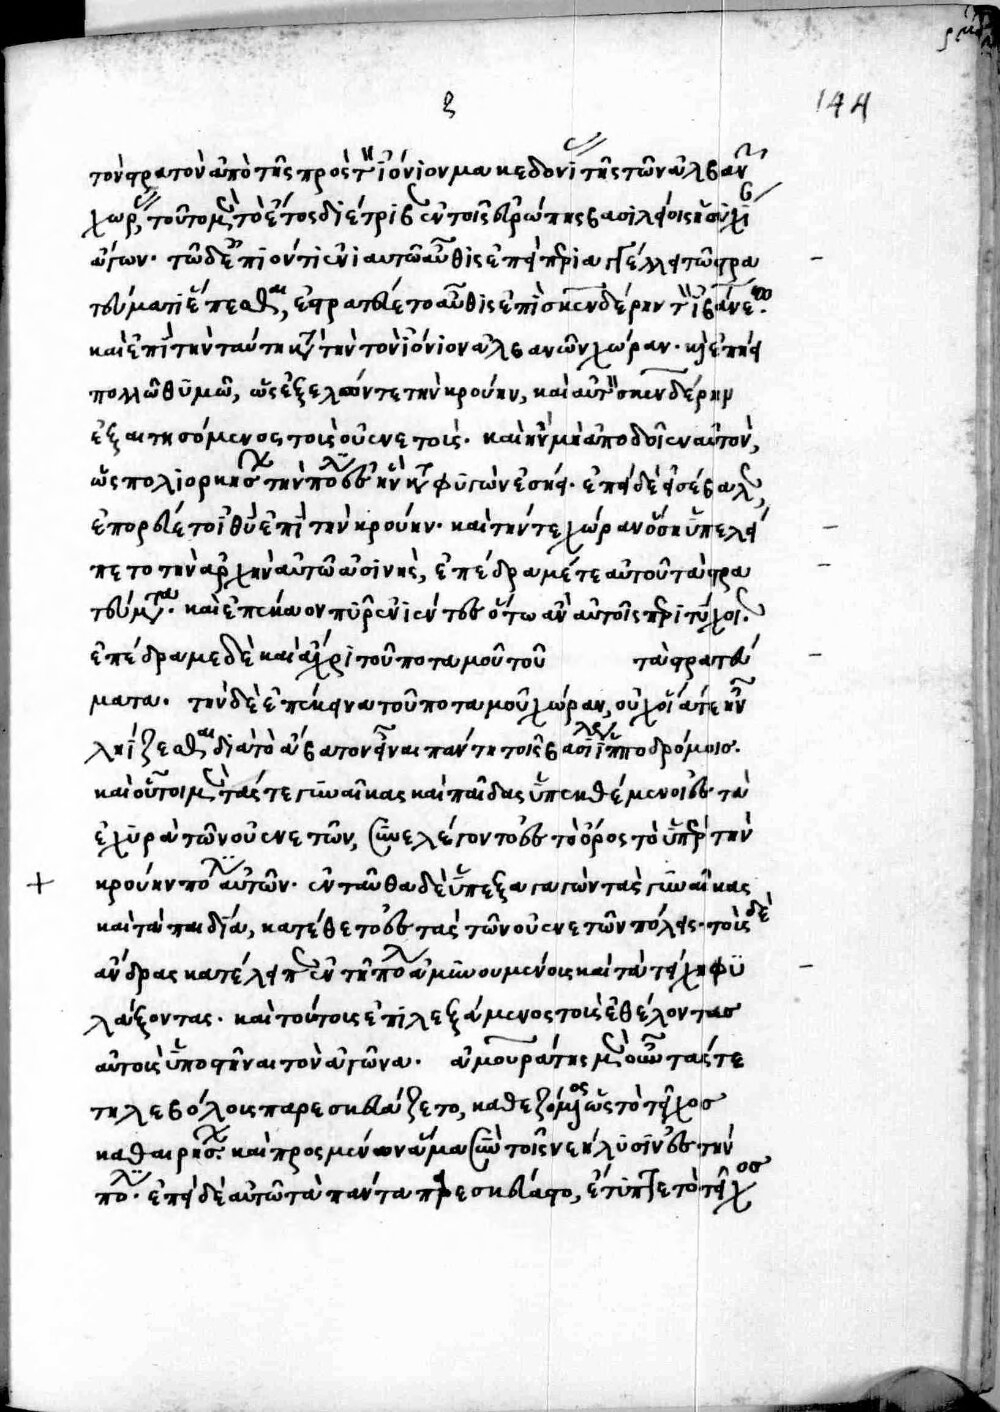 ζ 144
στρατὸν ἀπὸ τῆς πρὸς τὸν ἰόνιον μακεδονίας τῆς τῶν ἀλβανῶν
χώρας, τοῦτο μὲν τὸ ἔτος διέτριβεν ἐν τοῖς εὐρώπης βασιλείοις ἡσυχίαν
ἄγων. τῶ δὲ ἐπιόντι ἐνιαυτῶ αὖθις ἐπεὶ περιαγγείλλει τῶ στρα
τεύματι ἕπεσθαι, ἐστρατεύετο αὖθις ἐπὶ σκενδέρην τὸν ἰβάνεω.
καὶ ἐπὶ τὴν ταύτη κατὰ τὴν τὸν ἰόνιον ἀλβανῶν χώραν. καὶ ἐπῄει
πολλῶ θυμῶ, ὡς ἐξελῶν τε τὴν κρούην, καὶ αὐτὸν σκενδέρην
ἐξαιτησόμενος τοὺς οὐενετούς. καὶ ἢν μὴ ἀποδοῖεν αὐτὸν,
ὡς πολιορκήσων τὴν πόλιν ἐς ἣν καταφυγὼν ἐσῄει. ἐπεὶ δὲ ἐσέβαλεν,
ἐπορεύετο ἰθὺ ἐπὶ τὴν κρούην. καὶ τήν τε χώραν ὅση ὑπελεί
πετο τὴν ἀρχὴν αὐτῶ ἀσινὴς, ἐπέδραμέ τε αὐτοῦ τὰ στρα
τεύματα. καὶ ἐπέκαον πῦρ ἐνιέντες ὅτω ἂν αὐτοῖς περιτύχοιεν.
ἐπέδραμε δὲ καὶ ἄχρι τοῦ ποταμοῦ τοῦ τὰ στρατεύ
ματα. τὴν δὲ ἐπέκεινα τοῦ ποταμοῦ χώραν, οὐχ οἷά τε ἦν
ληΐζεσθαι διὰ τὸ ἄβατον εἶναι πάντη τοῖς βασιλέως ἱπποδρόμοις.
καὶ οὗτοι μὲν τάς τε γυναῖκας καὶ παῖδας ὑπεκθέμενοι ἐς τὰ
ἐχυρὰ τῶν οὐενετῶν, συνελέγοντο ἐς τὸ ὄρος τὸ ὑπὲρ τὴν
κρούην πόλιν αὐτῶν. ἐνταῦθα δὲ ὑπεξαγαγὼν τὰς γυναῖκας
καὶ τὰ παιδία, κατέθετο ἐς τὰς τῶν οὐενετῶν πόλεις. τοὺς δὲ
ἄνδρας κατέλειπεν ἐν τῆ πόλει ἀμυνουμένους καὶ τὰ τείχη φυ
λάξοντας. καὶ τούτοις ἐπιλεξάμενος τοὺς ἐθέλοντας
αὐτοὺς ὑποστῆναι τὸν ἀγῶνα. ἀμουράτης μὲν οὖν τάς τε
τηλεβόλους παρεσκευάζετο, καθεζόμενος ὡς τὸ τεῖχος
καθαιρήσων. καὶ προσμένων ἅμα σὺν τοῖς νεήλυσιν ἐς τὴν
πόλιν. ἐπεὶ δὲ αὐτῶ τὰ πάντα παρεσκεύαστο, ἔτυπτε τὸ τεῖχος